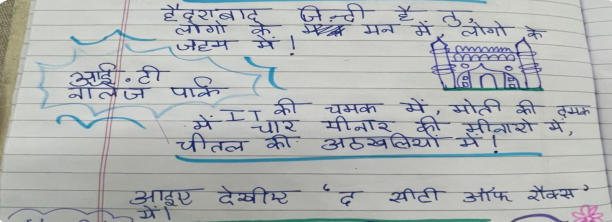 हैदराबाद जिन्दी है तु,
लोगो के मन में, लोगो के
जहम में!
आई.टी
नालेज पार्क
IT की चमक में, मोती की दमक
में चार मीनार की मीनारो में,
चीतल की अठखेलियो में!
आइए देखीए 'द सीटी ऑफ रॉक्स'
में!